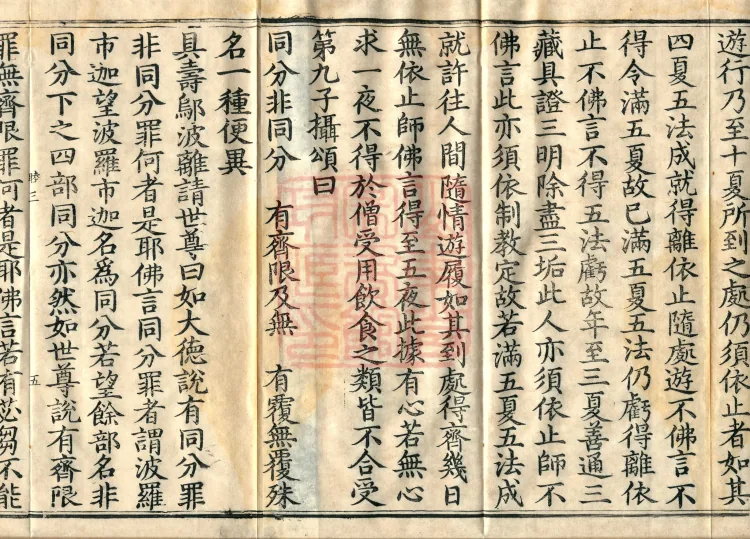 遊行乃至十夏所到之處仍須依止者如其
四夏五法成就得離依止隨處遊不佛言不
得令滿五夏故已滿五夏五法仍虧得離依
止不佛言不得五法虧故年至三夏善通三
藏具證三明除盡三垢此人亦須依止師不
佛言此亦須依制教定故若滿五夏五法成
就許往人間隨情遊履如其到處得齊幾日
無依止師佛言得至五夜此據有心若無心
求一夜不得於僧受用飲食之類皆不合受
第九子攝頌曰
同分非同分　有齊限及無　有覆無覆殊
名一種便異
具壽鄔波離請世尊曰如大德說有同分罪
非同分罪何者是耶佛言同分罪者謂波羅
市迦望波羅市迦名為同分若望餘部名非
同分下之四部同分亦然如世尊說有齊限
罪無齊限罪何者是耶佛言若有苾芻不能